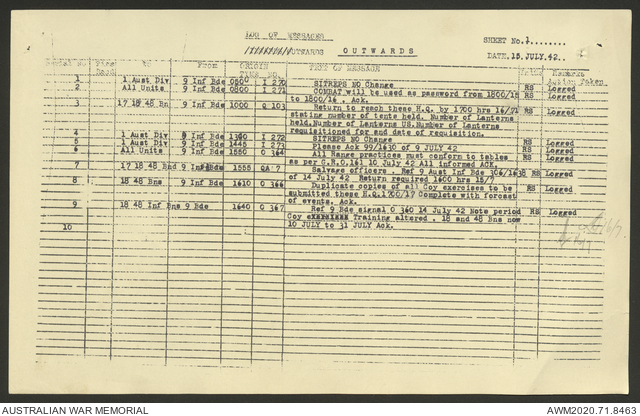 LOG OF MESSAGES
OUTWARDS OUTWARDS
SHEET No. 1
DATE. 15 JULY. 42
Serial No. To From ORIGIN TEXT OF MESSAGE Remarks
TIME NO. Action Taken
1 1 Aust Div 9 Inf Bde 0500 I 270 SITREPS NO Change RS Logged
2 All Units 9 Inf Bde 0800 I 271 COMBAT will be used as password from 1800/15 RS Logged
to 1800/16 . Ack.
3 17 18 48 Bn 9 Inf Bde 1000 Q 103 Return to reach these H.Q. by 1700 hrs 16/7 RS Logged
stating number of tents held. Number of Lanterns
held. Number of Lanterns US. Number of Lanterns
requisitioned for and date of requisition.
4 1 Aust Div 9 Inf Bde 1300 I 272 SITREPS NO Change RS Logged
5 1 Aust Div 9 Inf Bde 1445 I 273 Please Ack 99/1630 of 9 JULY 42 RS Logged
6 All Units 9 Inf Bde 1550 O 364 All Range practices must conform to tables RS Logged
as per G.R.O.161 10 July 42 All informed ACK.
7 17 18 48 Bns 9 Inf Bde 1555 QA 7 Salvage officers . Ref 9 Aust Inf Bde 306/16 RS Logged
of 14 July 42 Return required 1600 hrs 15/7
8 18 48 Bns 9 Inf Bde 1610 O 366 Duplicate copies of all Coy exercises to be RS Logged
submitted these H.Q.1700/17 Complete with forcast
of events. Ack.
9 18 48 Inf Bns 9 Bde 1640 O 367 Ref 9 Bde signal O 360 14 July 42 Note period RS Logged
Coy Training altered . 18 and 48 Bns now
10 JULY to 31 JULY Ack.
10
AUSTRALIAN WAR MEMORIAL
AWM2020.71.8463